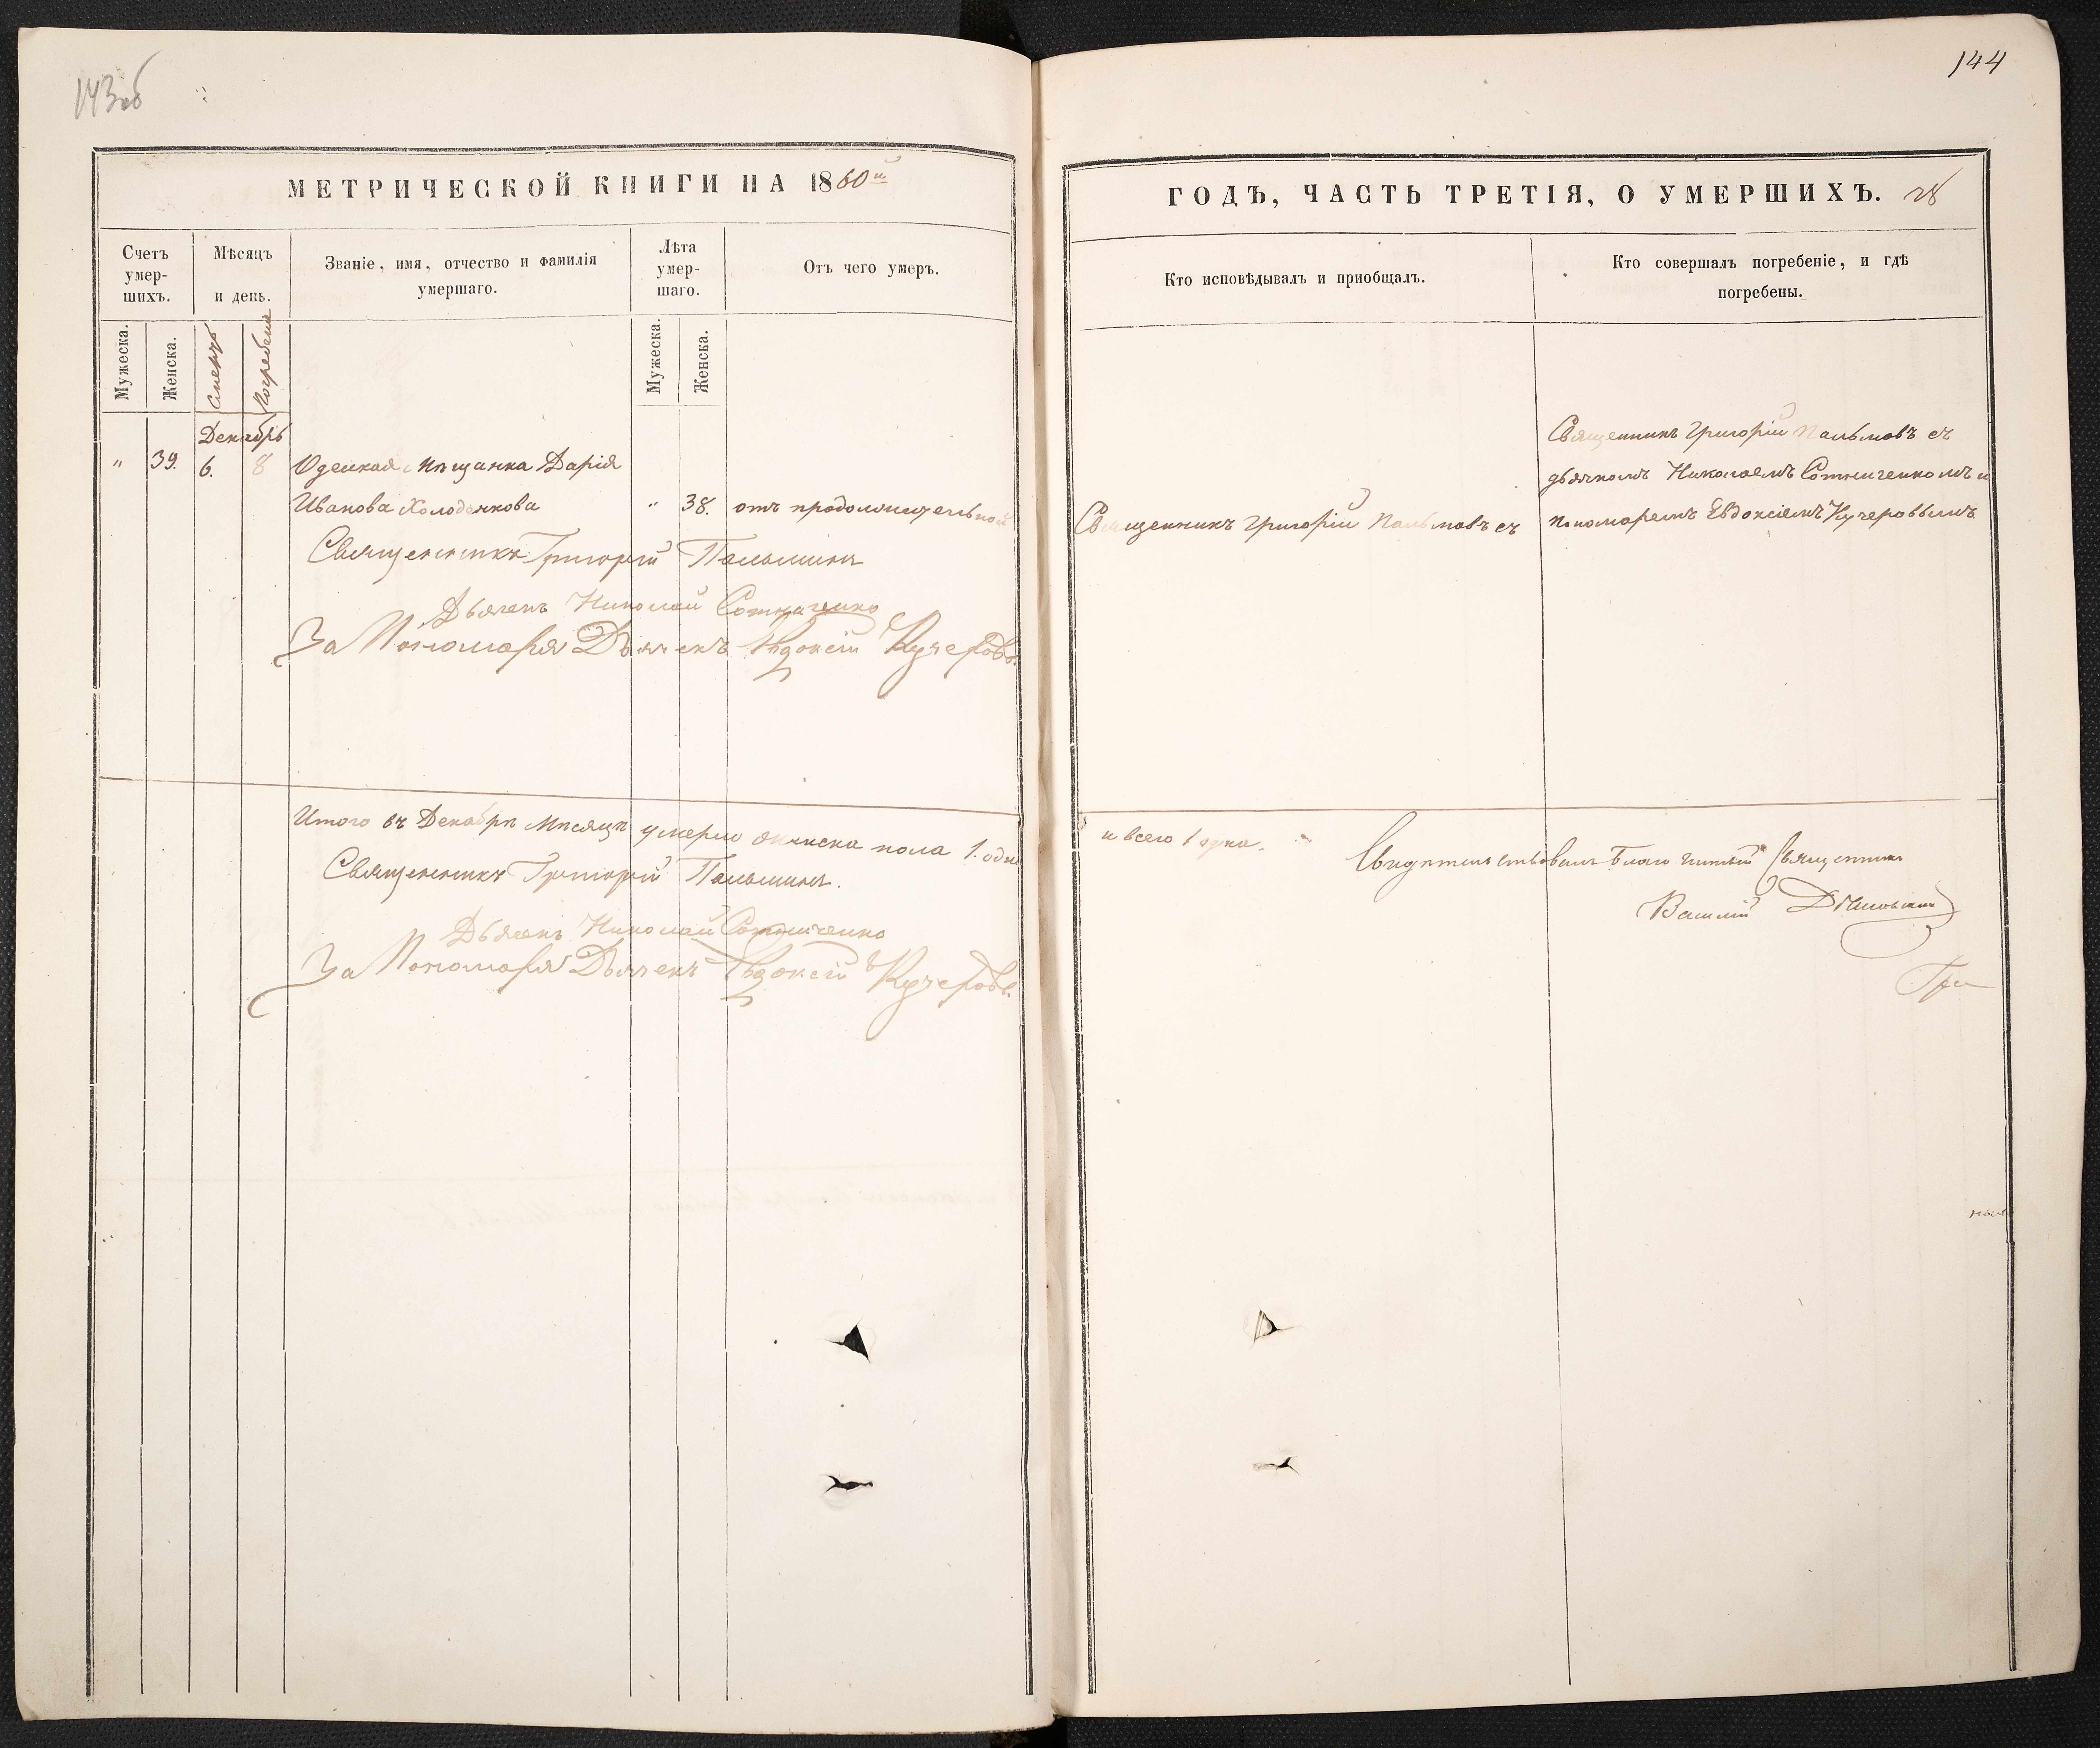 143об
МЕТРИЧЕСКОЙ КНИГИ НА 1860й
Счетъ умер-шихъ.
Мѣсяцъ и день.
Званіе, имя, отчество и фамилія умершаго.
Лѣта умер-шаго.
Отъ чего умеръ.
Мужеска.
Женска.
Смерть
Погребенія
Мужеска.
Женска.
Декабрь
" 39. 6. 8 Одеская мѣщанка Дарія
Иванова Холоденкова " 38. отъ продолжительной
Священникъ Григорій Пальминъ
Дьячекъ Николай Сотниченко
За Пономаря Дьячекъ Евдокій Кучеровъ.
Итого въ Декабрѣ мѣсяцѣ умерло женска пола 1. одна
Священникъ Григорій Пальминъ.
Дьячекъ Николай Сотниченко
За Пономаря Дьячекъ Евдокій Кучеровъ.
144
ГОДЪ, ЧАСТЬ ТРЕТІЯ, О УМЕРШИХЪ. 28
Кто исповѣдывалъ и пріобщалъ.
Кто совершалъ погребеніе, и гдѣ погребены.
Священникъ Григорій Пальмовъ съ
Священникъ Григорій Пальмовъ съ
дьячкомъ Николаемъ Сотниченкомъ и
пономаремъ Евдокіемъ Кучеровымъ
и всего 1 одна.
Свидѣтельствовалъ Благочинный Священникъ
Василій
Гри